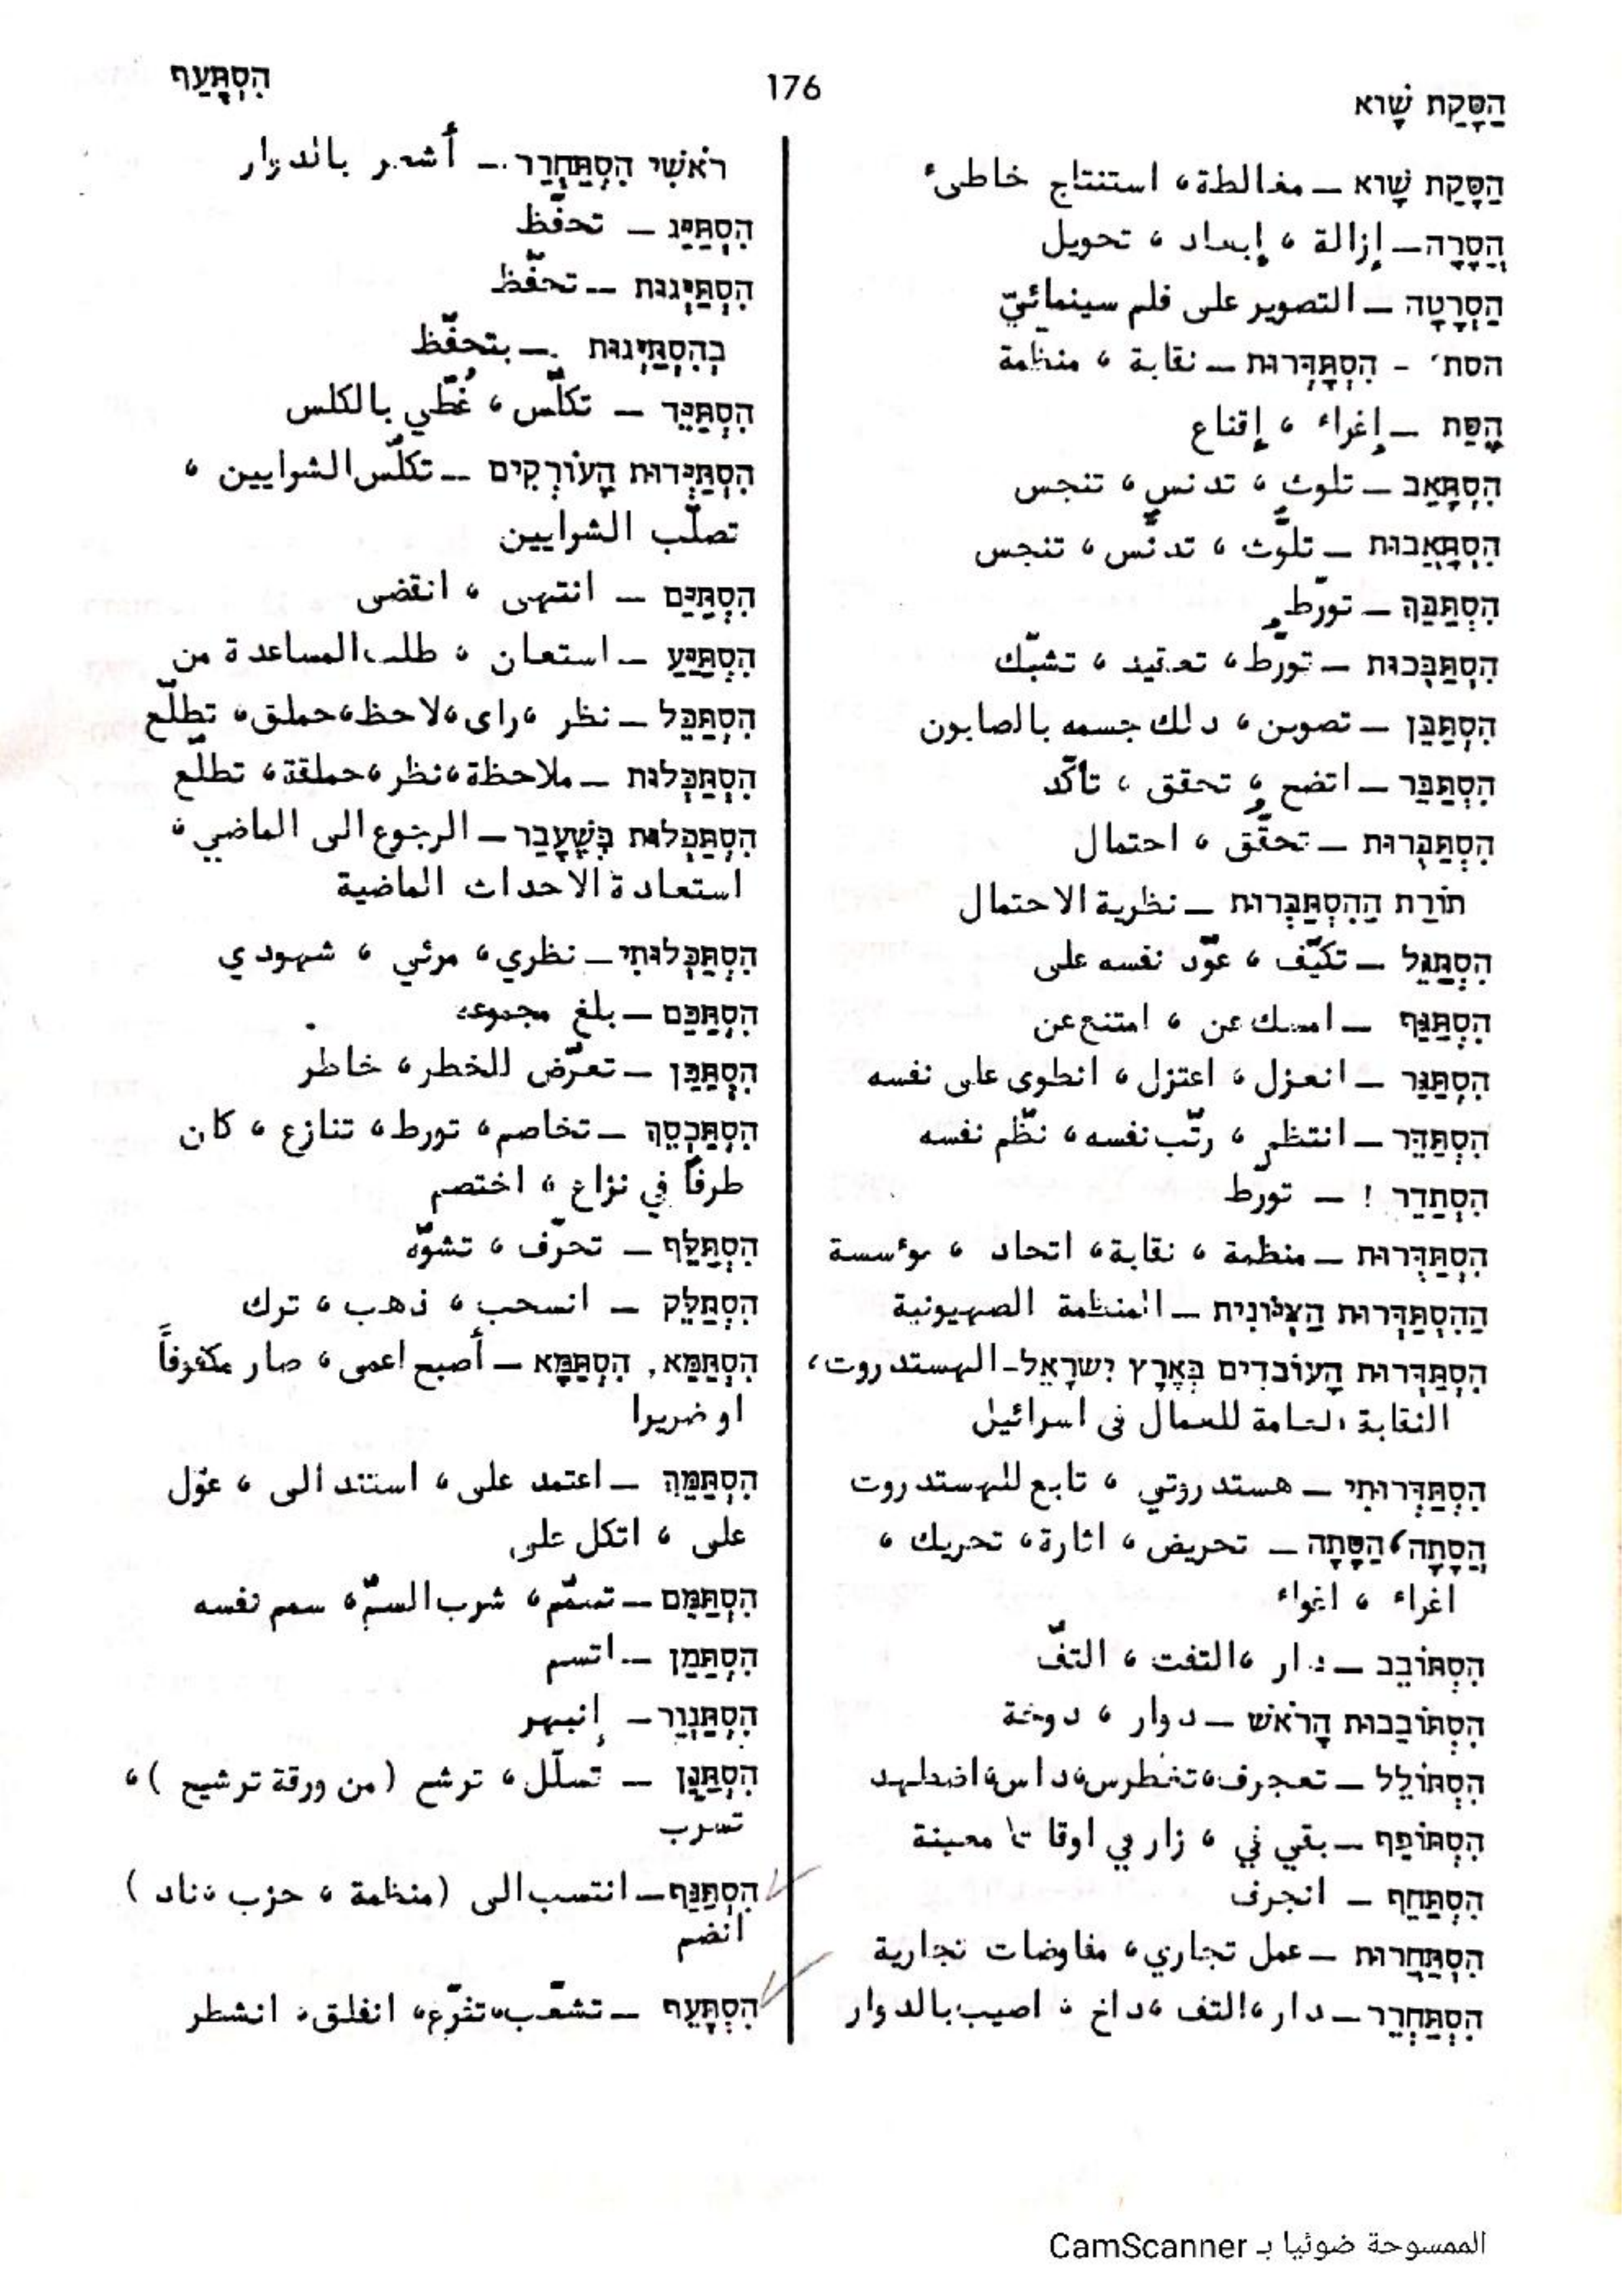 הִסְתָּעַף
176
הַסָּקַת שָׁוא
הַסָּקַת שָׁוא – مغالطة، استنتاج خاطئ
הֲסָרָה – إزالة ، إبعاد ، تحويل
הַסְרָטָה – التصوير على فلم سينمائيّ
הסת׳ - הִסְתַּדְּרוּת – نقابة ، منظّمة
הֶסֵּת – إغراء ، إقناع
הִסְתָּאֵב – تلوث ، تدنس ، تنجس
הִסְתָּאֲבוּת – تلوّث ، تدنّس ، تنجس
הִסְתַּבֵּךְ – تورّط
הִסְתַּבְּכוּת – تورّط ، تعقيد ، تشبّك
הִסְתַּבֵּן – تصوبن ، دلك جسمه بالصابون
הִסְתַּבֵּר – اتضح ، تحقق ، تأكّد
הִסְתַּבְּרוּת – تحقّق ، احتمال
תּוֹרַת הַהִסְתַּבְּרוּת – نظرية الاحتمال
הִסְתַּגֵּל – تكيّف ، عوّد نفسه على
הִסְתַּגֵּף – امسك عن ، امتنع عن
הִסְתַּגֵּר – انعزل ، اعتزل ، انطوى على نفسه
הִסְתַּדֵּר – انتظم ، رتّب نفسه ، نظّم نفسه
הִסְתַּדֵּר ! – تورّط
הִסְתַּדְּרוּת – منظمة ، نقابة، اتحاد ، مؤسسة
הַהִסְתַּדְּרוּת הַצִּיּוֹנִית – المنظمة الصهيونية
הִסְתַּדְּרוּת הָעוֹבְדִים בְּאֶרֶץ יִשְׂרָאֵל – الهستدروت،
النقابة العامة للعمال في اسرائيل
הִסְתַּדְּרוּתִי – هستدروتي ، تابع للهستدروت
הֲסָתָה، הַסָּתָה – تحريض ، اثارة، تحريك ،
اغراء ، اغواء
הִסְתּוֹבֵב – دار ،التفت ، التفّ
הִסְתּוֹבְבוּת הָרֹאשׁ – دوار ، دوخة
הִסְתּוֹלֵל – تعجرف،تغطرس،داس،اضطهد
הִסְתּוֹפֵף – بقي في ، زار في اوقات معينة
הִסְתַּחֵף – انجرف
הִסְתַּחֲרוּת – عمل تجاري، مفاوضات تجارية
הִסְתַּחְרֵר – دار ،التف ،داخ ، اصيب بالدوار
רֹאשִׁי הִסְתַּחְרֵר – أشعر بالدوار
הִסְתַּיֵּג – تحفّظ
הִסְתַּיְּגוּת – تحفّظ
בְּהִסְתַּיְּגוּת – بتحفّظ
הִסְתַּיֵּד – تكلّس ، غُطّي بالكلس
הִסְתַּיְּדוּת הָעוֹרְקִים – تكلّس الشرايين ،
تصلّب الشرايين
הִסְתַּיֵּם – انتهى ، انقضى
הִסְתַּיַּע – استعان ، طلب المساعدة من
הִסְתַּכֵּל – نظر ،راى ،لاحظ،حملق، تطلّع
הִסְתַּכְּלוּת – ملاحظة ،نظر ،حملقة، تطلّع
הִסְתַּכְּלוּת בְּשֶׁעָבַר – الرجوع الى الماضي ،
استعادة الاحداث الماضية
הִסְתַּכְּלוּתִי – نظري، مرئي ، شهودي
הִסְתַּכֵּם – بلغ مجموعه
הִסְתַּכֵּן – تعرّض للخطر ، خاطر
הִסְתַּכְסֵךְ – تخاصم، تورط، تنازع ، كان
طرفاً في نزاع ، اختصم
הִסְתַּלֵּף – تحرّف ، تشوّه
הִסְתַּלֵּק – انسحب ، ذهب ، ترك
הִסְתַּמֵּא, הִסְתַּמָּא – أصبح اعمى ، صار مكفوفاً
او ضريرا
הִסְתַּמֵּךְ – اعتمد على ، استند الى ، عوّل
على ، اتكل على
הִסְתַּמֵּם – تسمّم، شرب السمّ، سمم نفسه
הִסְתַּמֵּן – اتسم
הִסְתַּנְוֵר – إنبهر
הִסְתַּנֵּן – تسلّل، ترشح (من ورقة ترشيح) ،
تسرب
הִסְתַּנֵּף – انتسب الى (منظمة ، حزب ،ناد)
انضم
הִסְתָּעֵף – تشعّب،تفرّع، انفلق، انشطر
الممسوحة ضوئيا بـ CamScanner